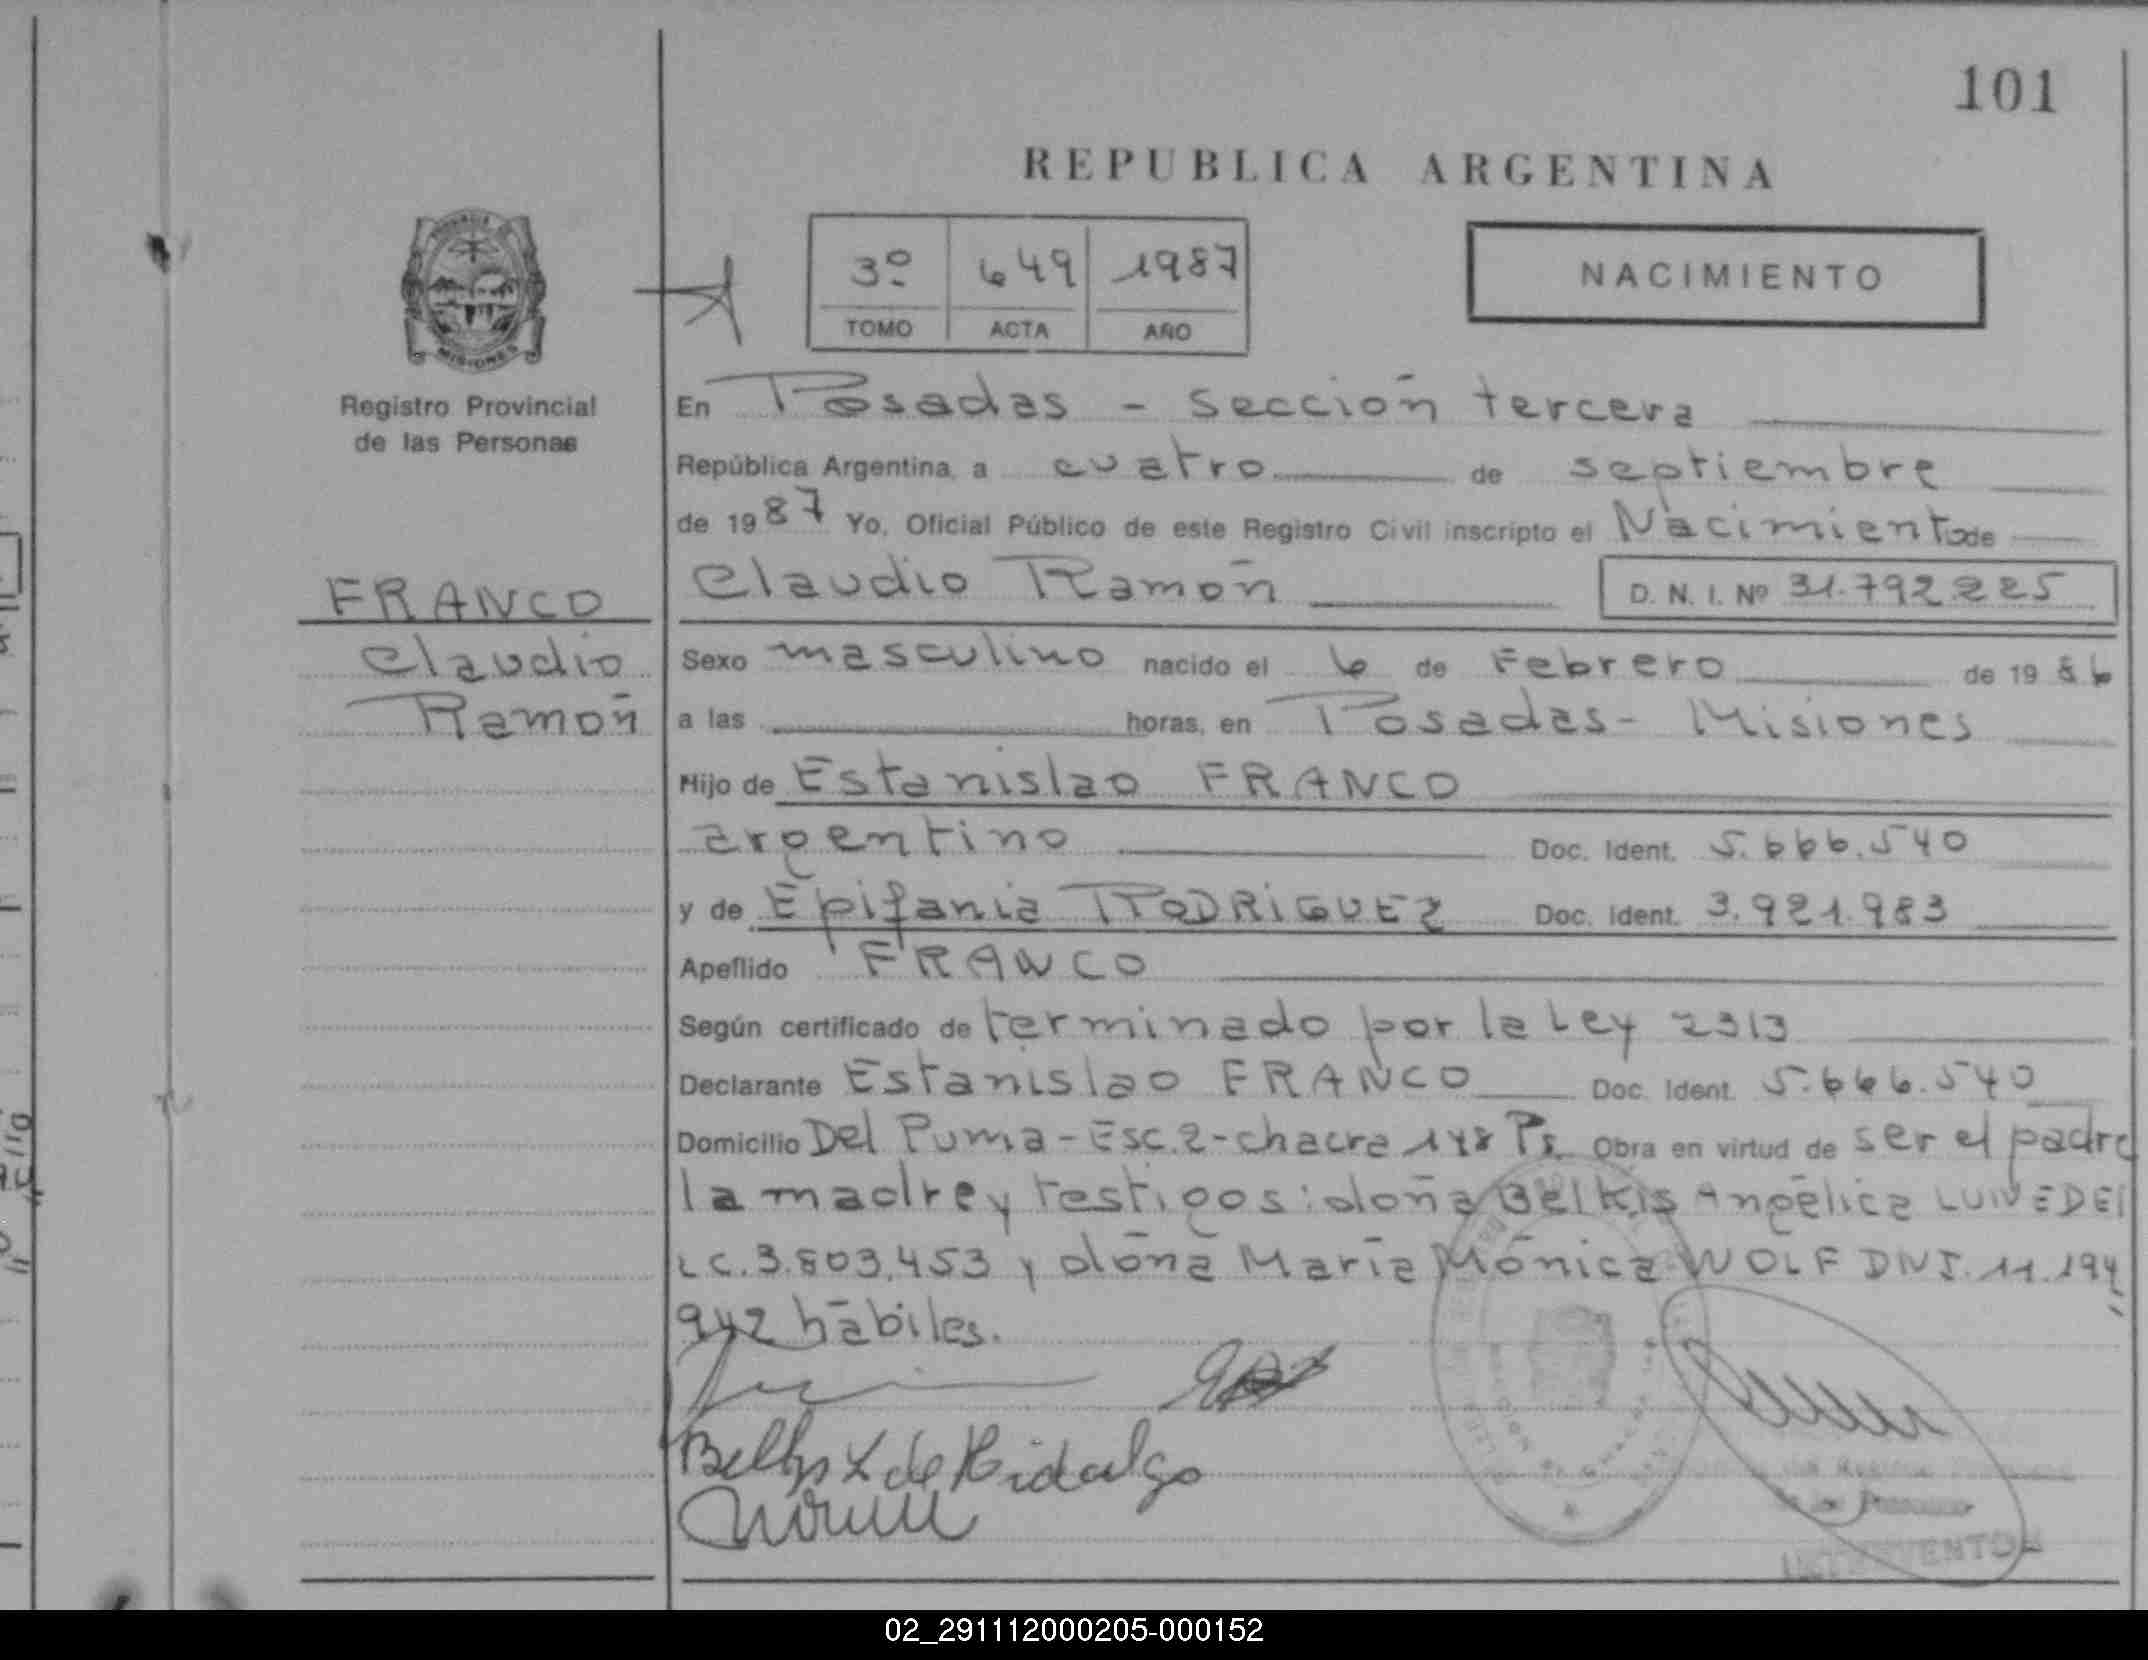 101
REPUBLICA ARGENTINA
3º 649 1987
TOMO ACTA AÑO
NACIMIENTO
MISIONES
Registro Provincial
de las Personas
FRANCO
Claudio
Ramón
En Posadas - Sección tercera
República Argentina, a cuatro de septiembre
de 1987 Yo, Oficial Público de este Registro Civil inscripto el Nacimiento de
Claudio Ramón D. N. I. Nº 31.792225
Sexo masculino nacido el 6 de Febrero de 1986
a las horas, en Posadas - Misiones
Hijo de Estanislao FRANCO
argentino Doc. Ident. 5.666.540
y de Epifania RODRIGUEZ Doc. Ident. 3.921.983
Apellido FRANCO
Según certificado de terminado por la Ley 2313
Declarante Estanislao FRANCO Doc. Ident. 5.666.540
Domicilio Del Puma - Esc. 2 - chacra 148 Ps. Obra en virtud de ser el padre
la madre y testigos: doña Belkis Angélica
LC. 3.803.453 y doña María Mónica WOLF DNI. 11.194
942 hábiles.
de Hidalgo
02_291112000205-000152